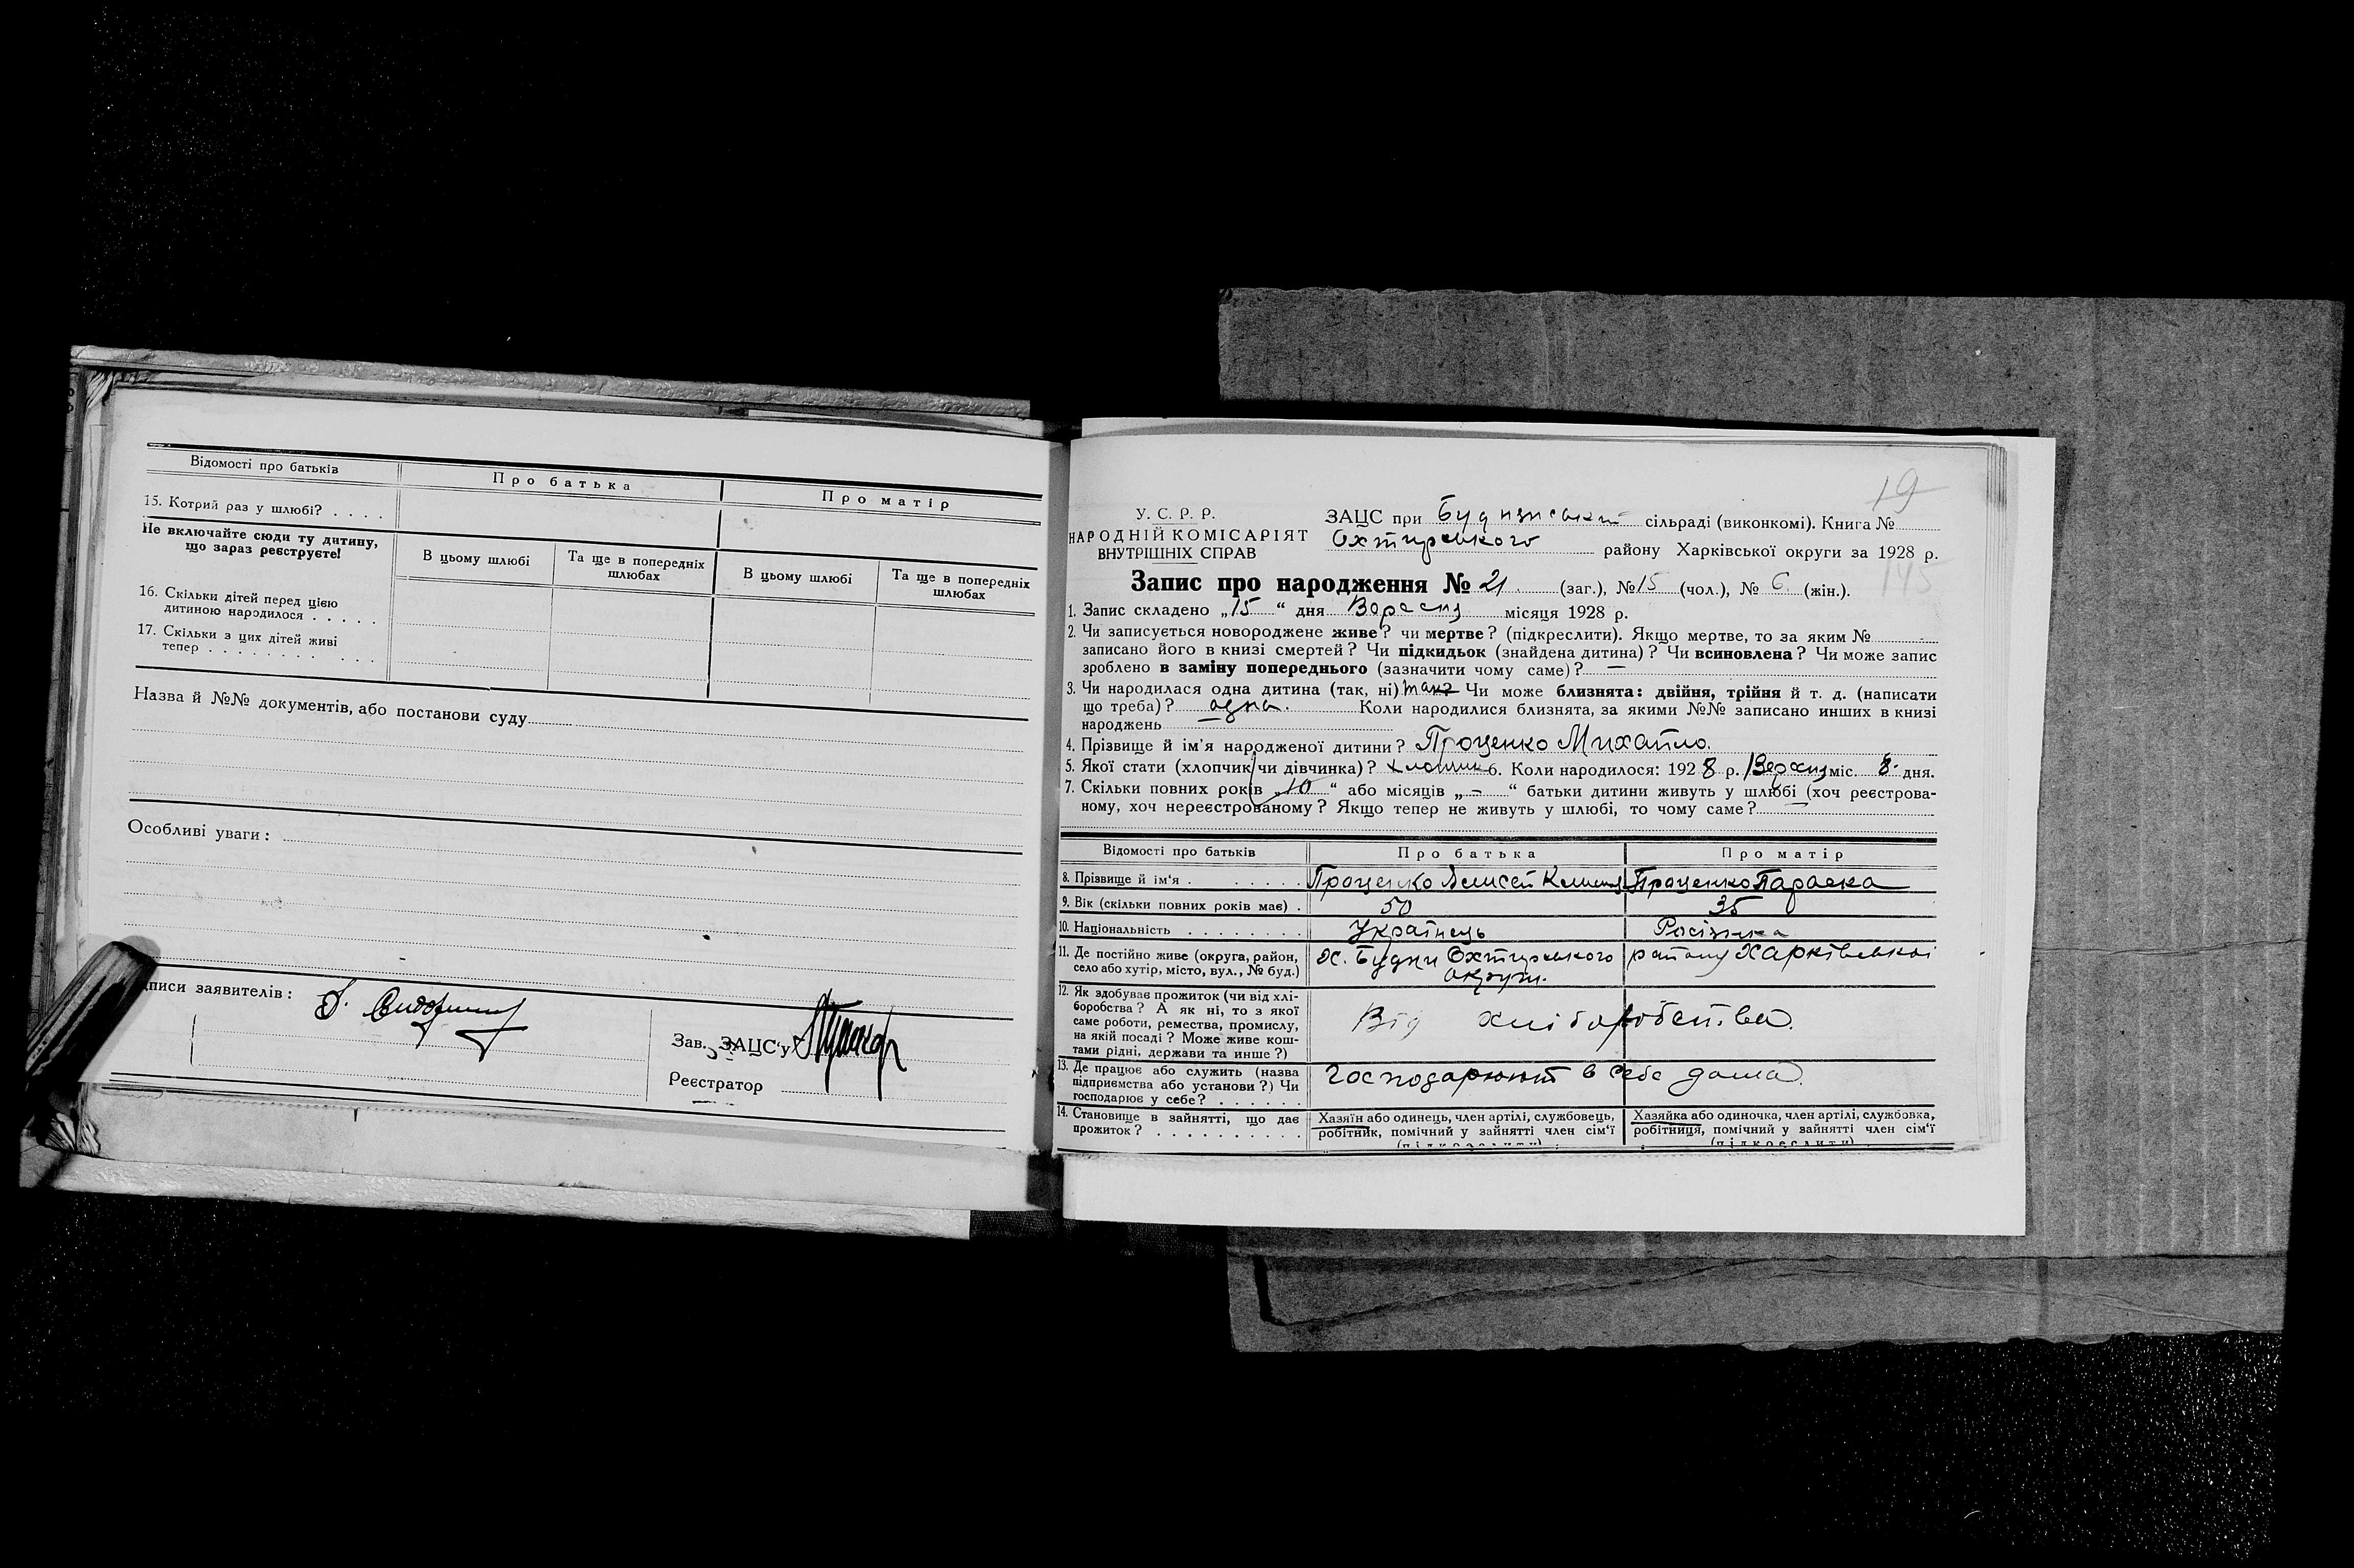 Відомості про батьків
Про батька
Про матір
15. Котрий раз у шлюбі? . . . .
Не включайте сюди ту дитину,
що зараз реєструєте!
В цьому шлюбі
Та ще в попередніх
шлюбах
В цьому шлюбі
Та ще в попередніх
шлюбах
16. Скільки дітей перед цією
дитиною народилося . . . . .
17. Скільки з цих дітей живі
тепер . . . . . . . . . . .
Назва й №№ документів, або постанови суду
Особливі уваги:
писи заявителів:
Зав. ЗАЦС'у
Реєстратор
19
У. С. Р. Р.
НАРОДНІЙ КОМІСАРІЯТ
ВНУТРІШНІХ СПРАВ
ЗАЦС при сільраді (виконкомі). Книга №
Охтирського району Харківської округи за 1928 р.
145
Запис про народження № 21. (заг.), № 15 (чол.), № 6. (жін.).
1. Запис складено „15“ дня Вересня місяця 1928 р.
2. Чи записується новороджене живе? чи мертве? (підкреслити). Якщо мертве, то за яким №
записано його в книзі смертей? Чи підкидьок (знайдена дитина)? Чи всиновлена? Чи може запис
зроблено в заміну попереднього (зазначити чому саме)? —
3. Чи народилася одна дитина (так, ні) так Чи може близнята: двійня, трійня й т. д. (написати
що треба)? одна. Коли народилися близнята, за якими №№ записано инших в книзі
народжень —
4. Прізвище й ім'я народженої дитини? Проценко Михайло.
5. Якої стати (хлопчик чи дівчинка)? хлопчик 6. Коли народилось: 1928 р. Вересня міс. 8. дня.
7. Скільки повних років „10“ або місяців „—“ батьки дитини живуть у шлюбі (хоч реєстрова-
ному, хоч нереєстрованому? Якщо тепер не живуть у шлюбі, то чому саме? —
Відомості про батьків
Про батька
Про матір
8. Прізвище й ім'я . . . . . . .
Проценко
Проценко Параска
9. Вік (скільки повних років має) .
50
35
10. Національність . . . . . . . .
Українець
Росіянка
11. Де постійно живе (округа, район,
село або хутір, місто, вул., № буд.)
Х. Будки Охтирського району Харківської
округи.
12. Як здобуває прожиток (чи від хлі-
боробства? А як ні, то з якої
саме роботи, ремества, промислу,
на якій посаді? Може живе кош-
тами рідні, держави та инше?)
Від хліборобства.
13. Де працює або служить (назва
підприємства або установи?) Чи
господарює у себе? . . . . . .
Господарюют в себе дома.
14. Становище в зайнятті, що дає
прожиток? . . . . . . . . . .
Хазяїн або одинець, член артілі, службовець,
робітник, помічний у зайнятті член сім'ї
(підкреслити) .
Хазяйка або одиночка, член артілі, службовка,
робітниця, помічний у зайнятті член сім'ї
(підкреслити) .